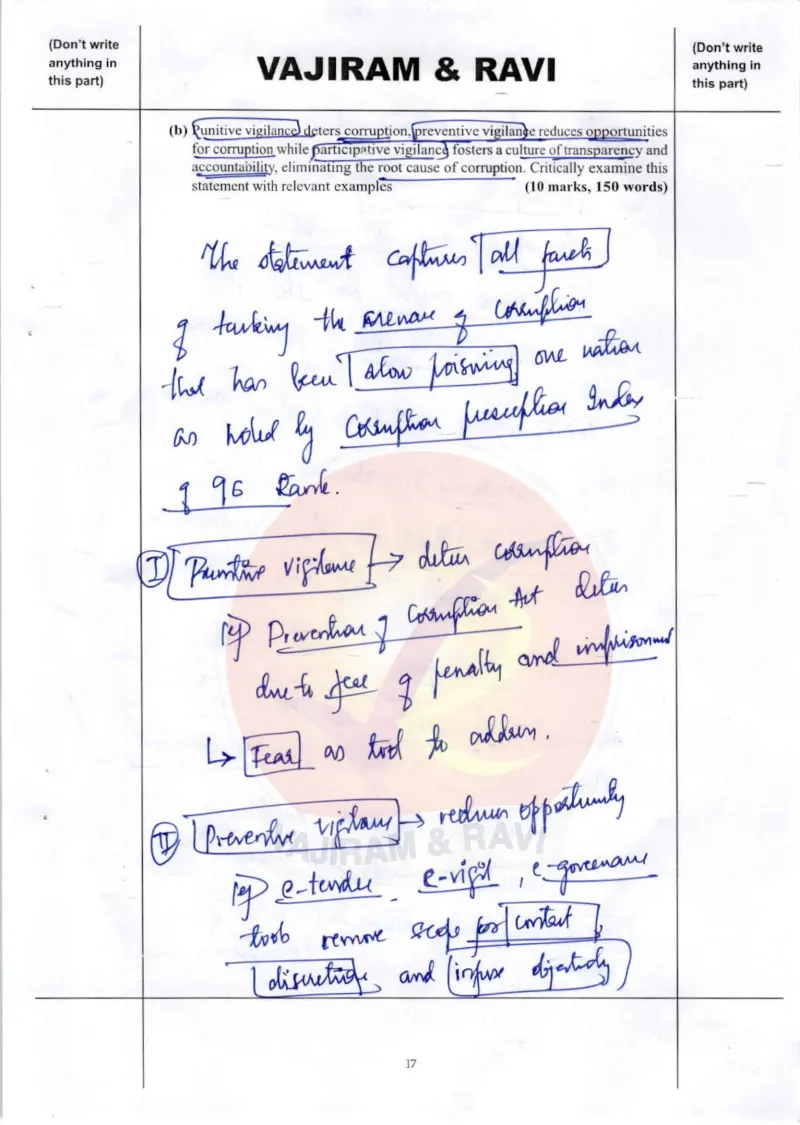 (Don't write
anything in
this part)
VAJIRAM & RAVI
(Don't write
anything in
this part)
(b) Punitive vigilance deters corruption, preventive vigilance reduces opportunities
for corruption while participative vigilance fosters a culture of transparency and
accountability, eliminating the root cause of corruption. Critically examine this
statement with relevant examples (10 marks, 150 words)
The statement captures all facets
of tackling the menace of corruption
that has been slow poisoning one nation
as noted by Corruption perception Index
of 96 Rank.
I Punitive vigilance → deters corruption
eg Prevention of Corruption Act deters
due to fear of penalty and imprisonment
↳ Fear as tool to address.
II Preventive vigilance → reduces opportunity
eg e-tender, e-vigil, e-governance
tools remove scope for contact,
discretion, and infuse objectivity
VAJIRAM & RAVI
17